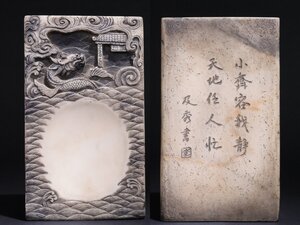 小齋容我靜
天地任人忙
及齋書